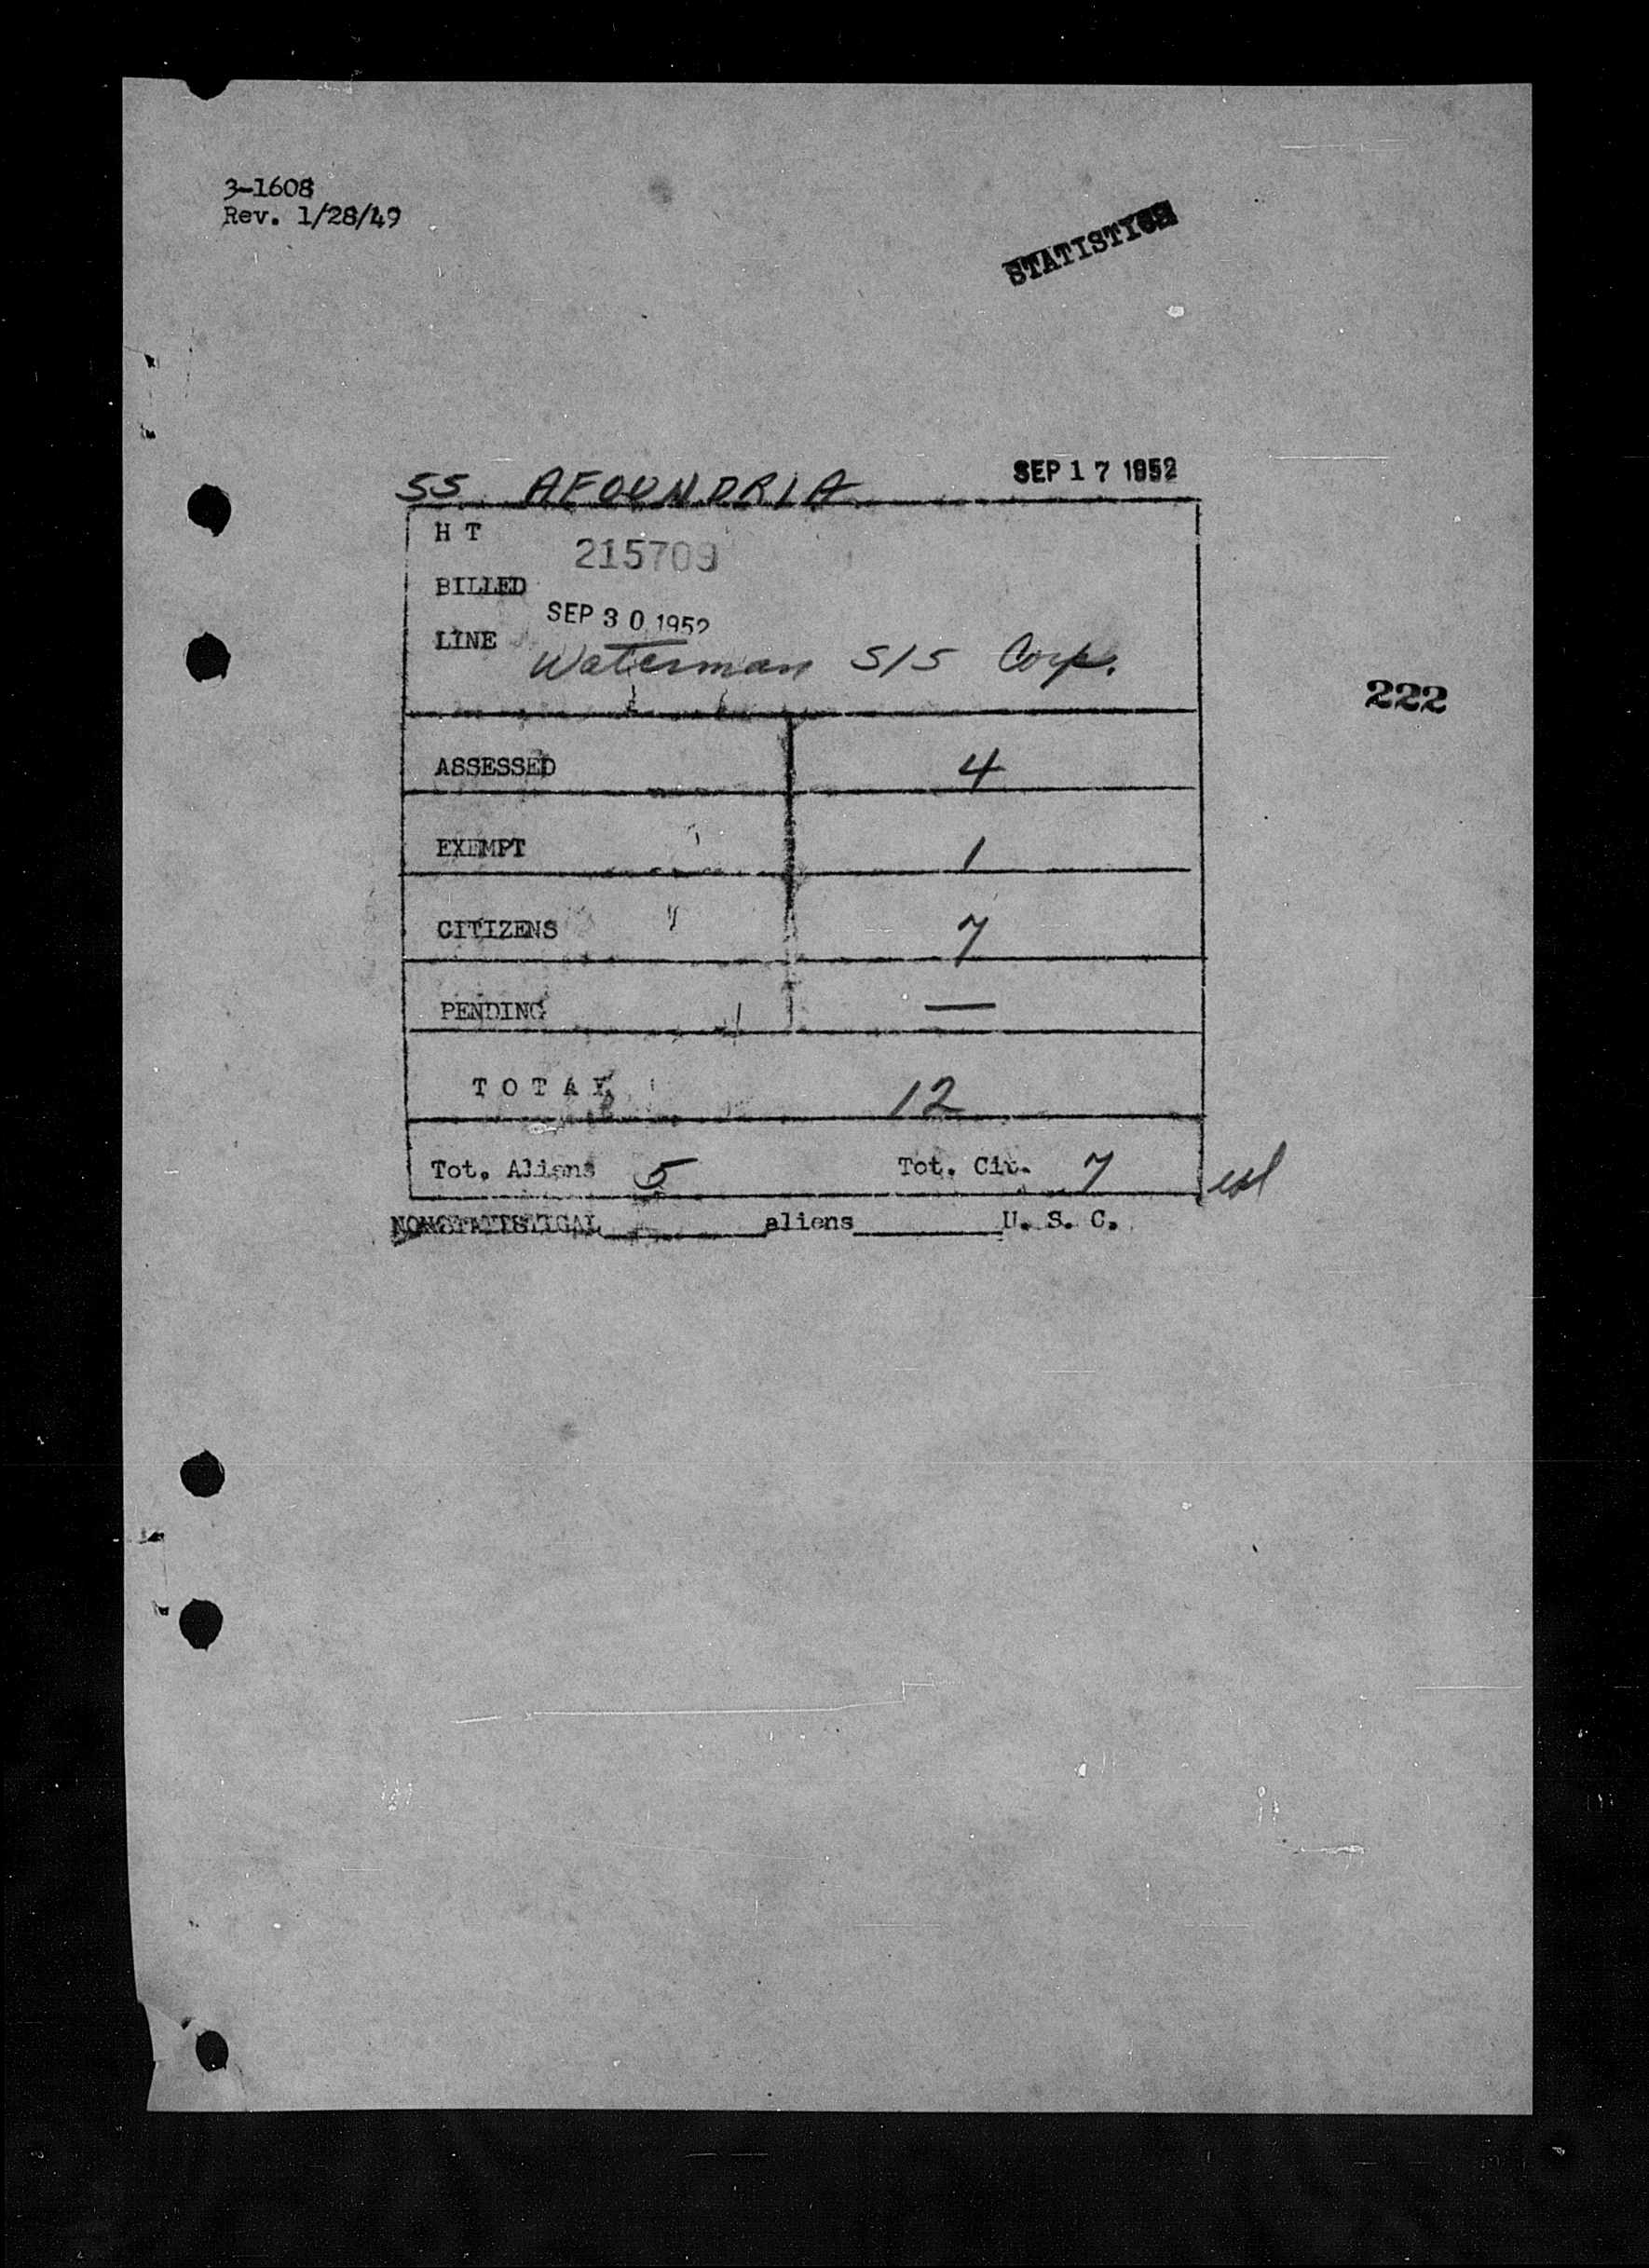 3-1608
Rev. 1/28/49
STATISTICS
SS AFOUNDRIA SEP 17 1952
H T 215709
BILLED
SEP 30 1952
LINE Waterman S/S Corp.
222
ASSESSED 4
EXEMPT 1
CITIZENS 7
PENDING —
T O T A L 12
Tot. Aliens 5 Tot. Cit. 7
NONSTATISTICAL________aliens________U. S. C.